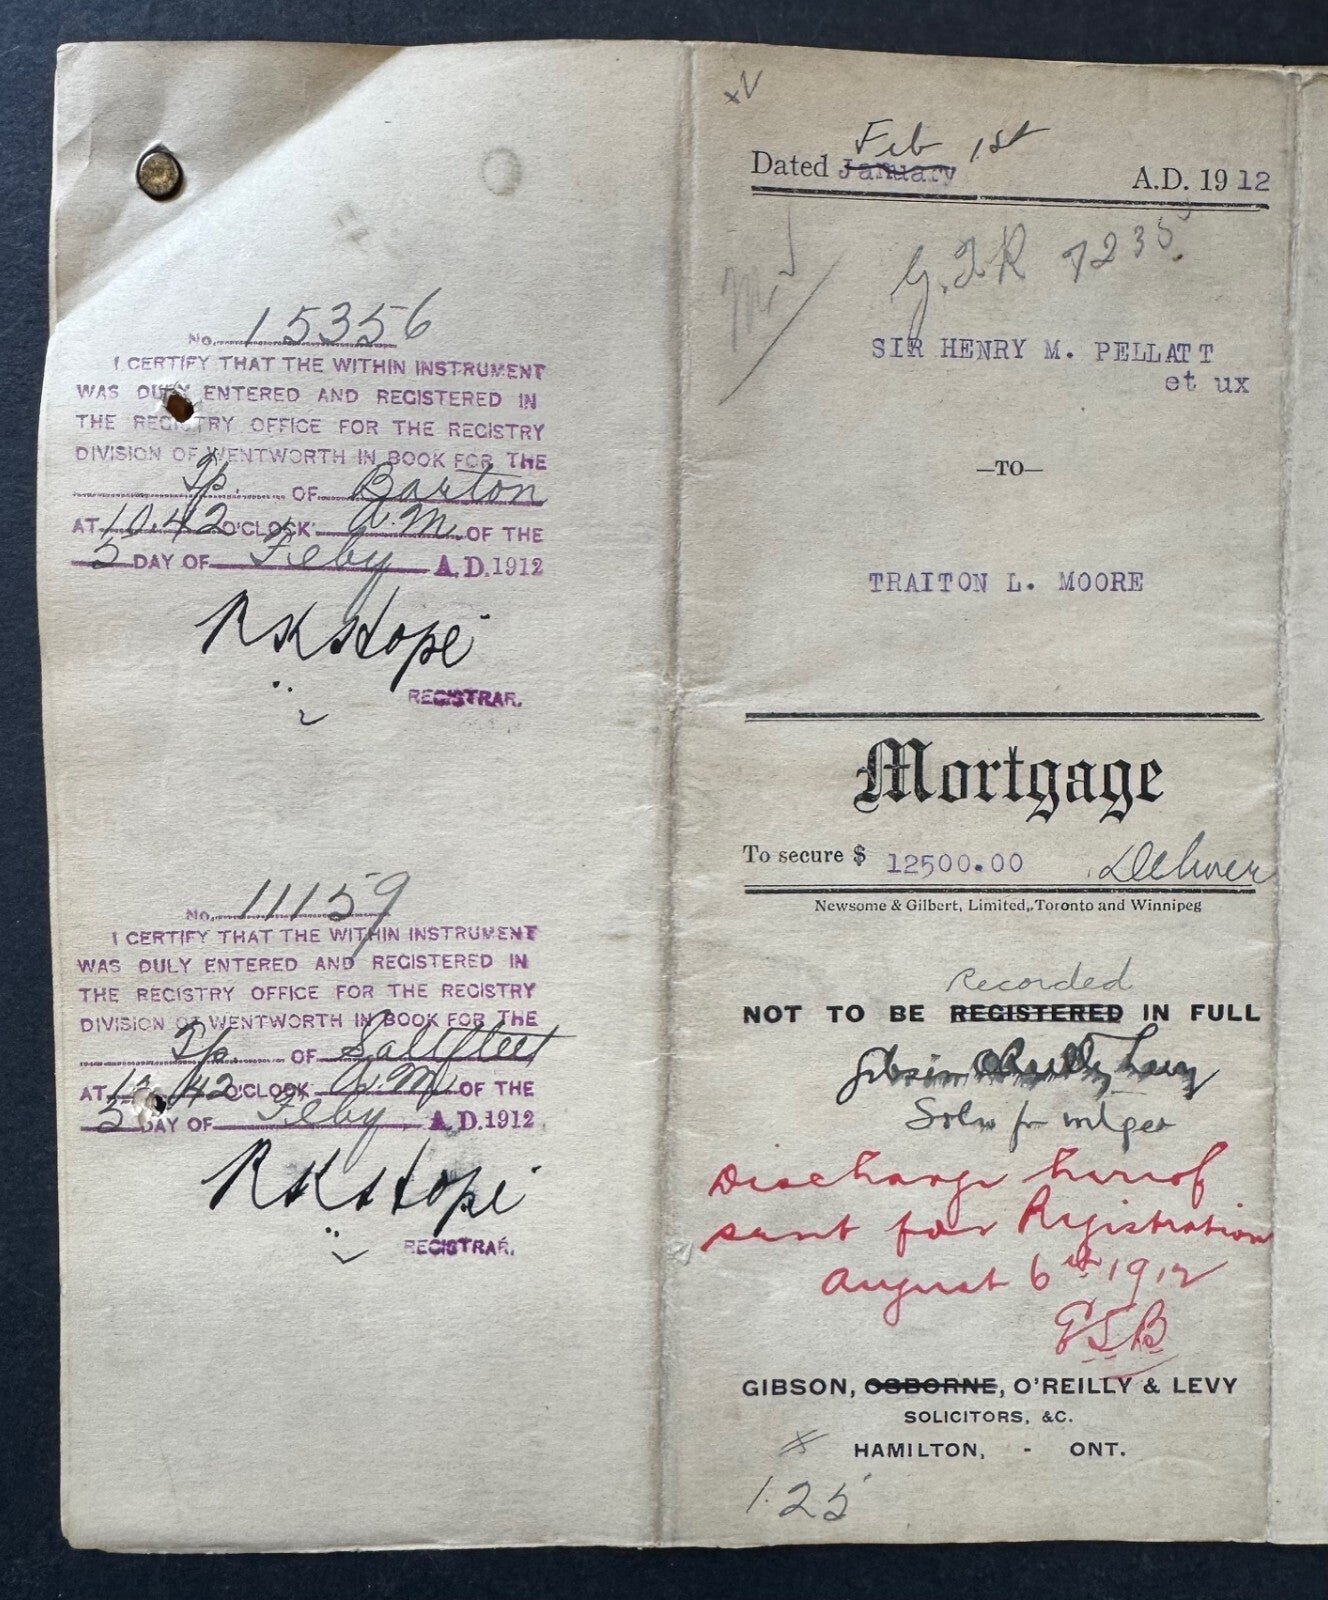 No. 15356
I CERTIFY THAT THE WITHIN INSTRUMENT
WAS DULY ENTERED AND REGISTERED IN
THE REGISTRY OFFICE FOR THE REGISTRY
DIVISION OF WENTWORTH IN BOOK FOR THE
Tp. OF Barton
AT 10.42 O'CLOCK A.M. OF THE
5 DAY OF Feby A.D. 1912
RKHope
REGISTRAR.
No. 11159
I CERTIFY THAT THE WITHIN INSTRUMENT
WAS DULY ENTERED AND REGISTERED IN
THE REGISTRY OFFICE FOR THE REGISTRY
DIVISION OF WENTWORTH IN BOOK FOR THE
Tp. OF Saltfleet
AT 10.42 O'CLOCK A.M. OF THE
5 DAY OF Feby A.D. 1912
RKHope
REGISTRAR.
Feb 1st
Dated January A.D. 1912
7235
SIR HENRY M. PELLATT
et ux
—TO—
TRAITON L. MOORE
Mortgage
To secure $ 12500.00
Newsome & Gilbert, Limited, Toronto and Winnipeg
Recorded
NOT TO BE REGISTERED IN FULL
Gibson O'Reilly Levy
Solrs for mtgee
Discharge hereof
sent for Registration
August 6th 1912
GIBSON, OSBORNE, O'REILLY & LEVY
SOLICITORS, &C.
HAMILTON, - ONT.
1.25